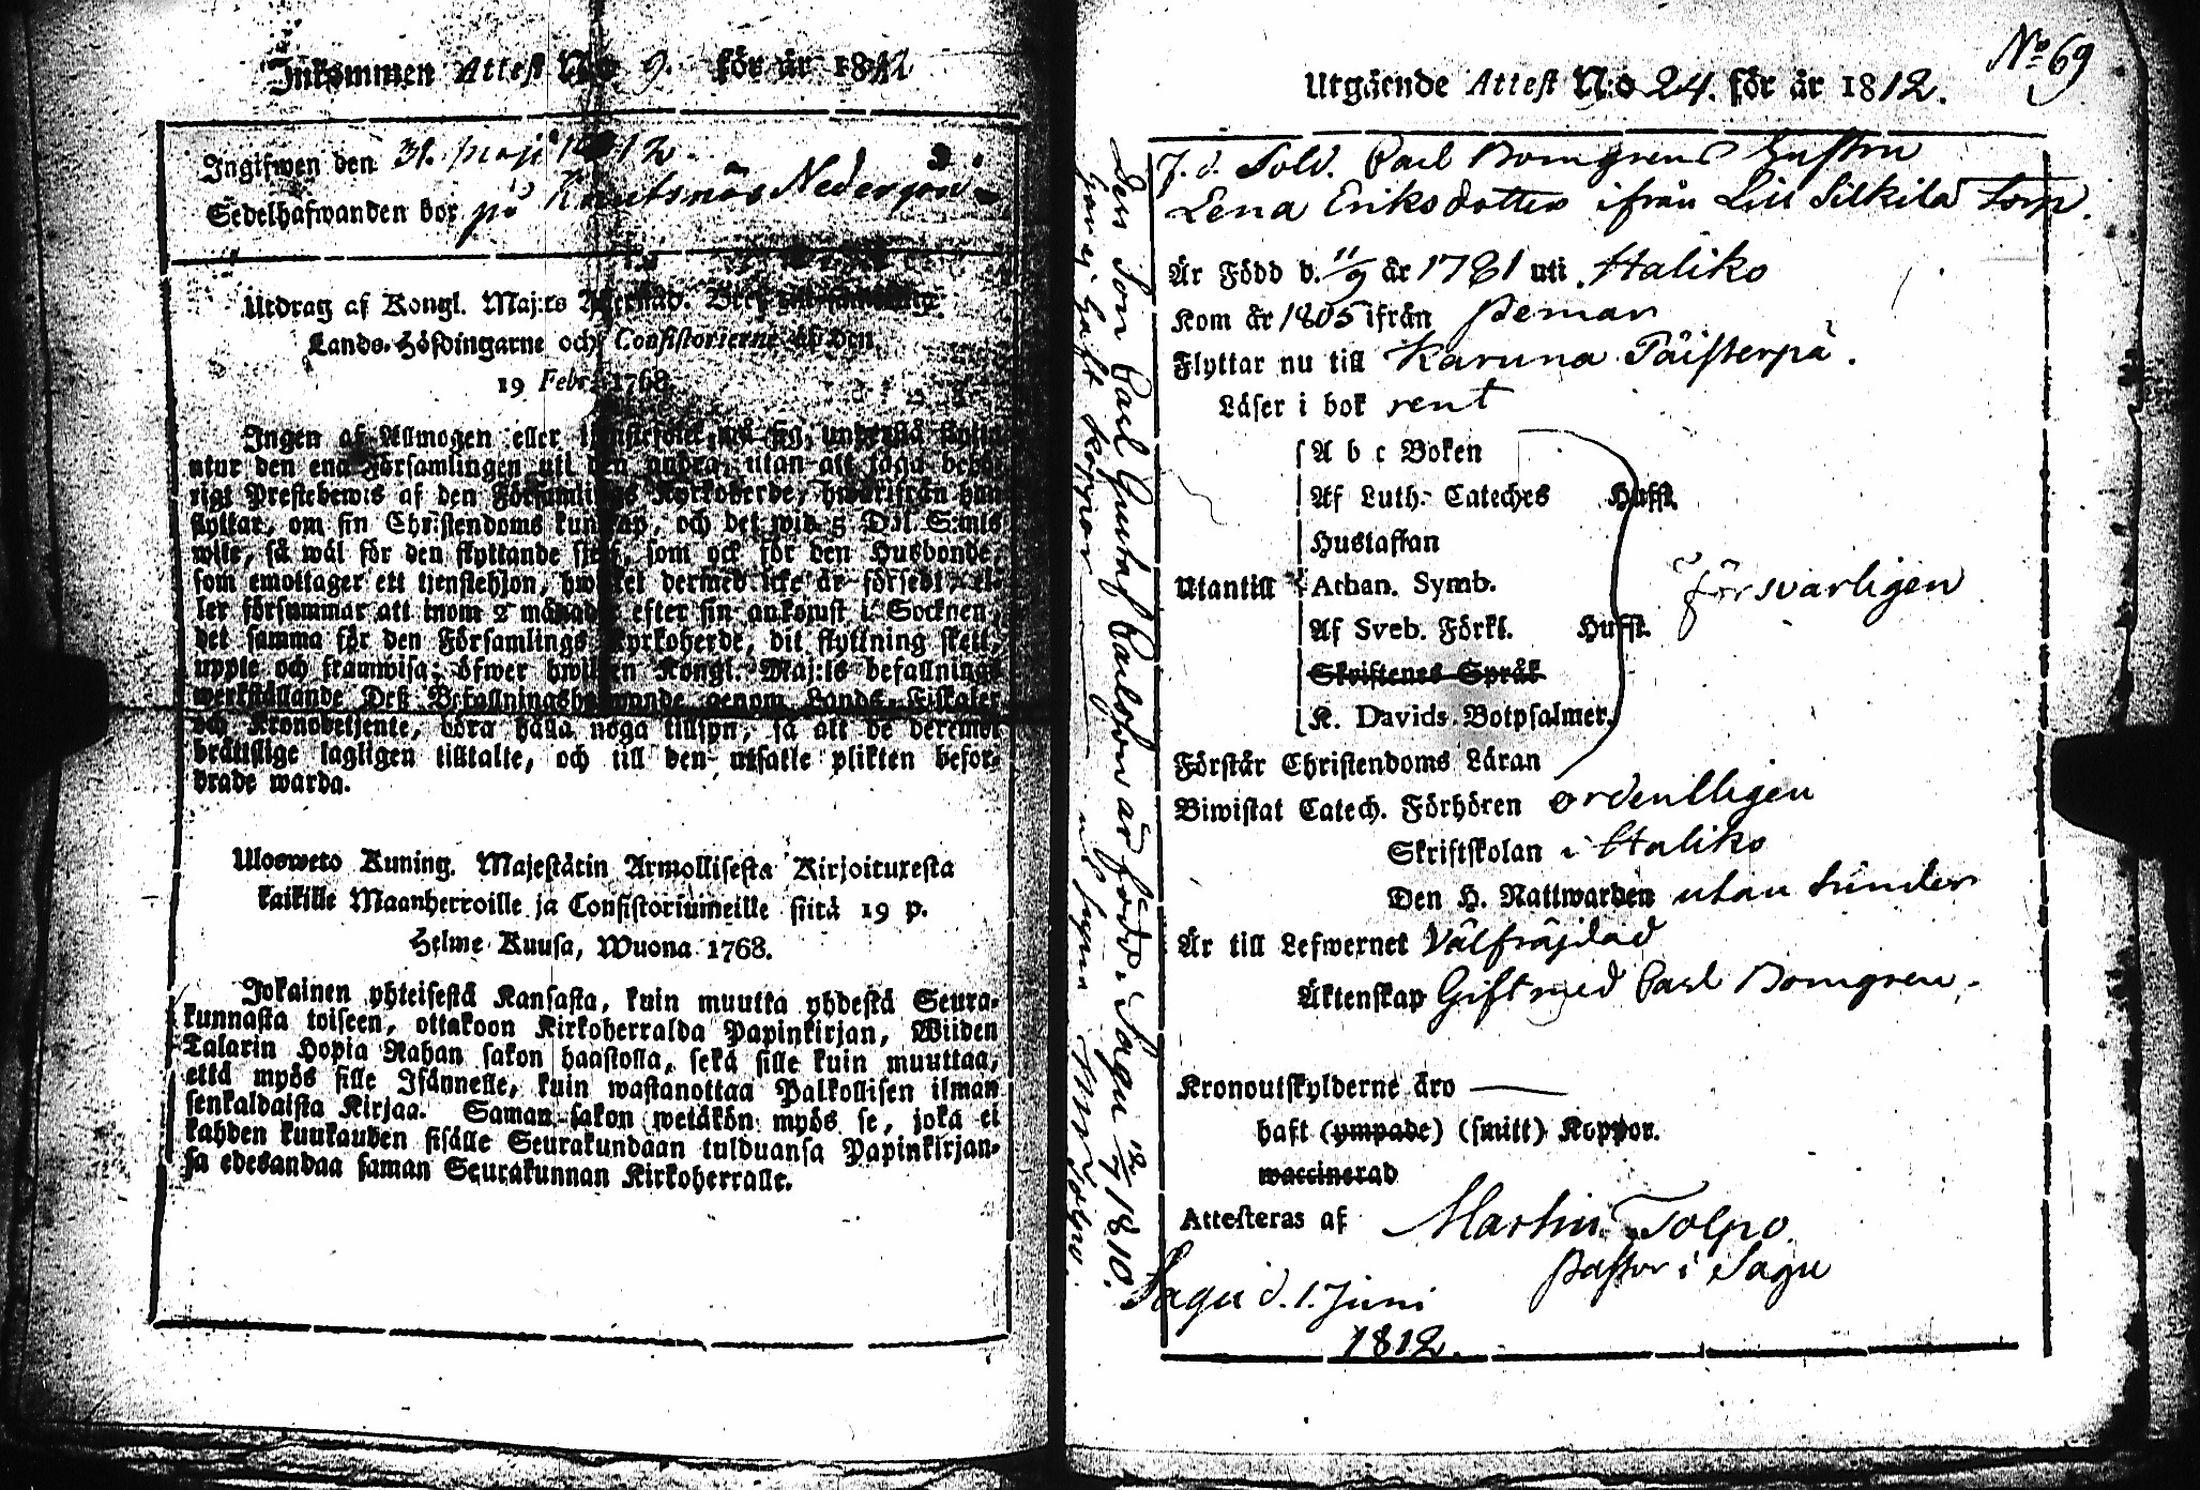 Inkommen Attest No 9. för år 1812
Ingifwen den 31. Maji 1812.
Sedelhafwanden bor på Knutsnäs Nedergård
Utdrag af Kongl. Maj:ts Bref
Lands-Höfdingarne och Consistorierne af den
19 Febr. 1768.
Ingen af Allmogen eller må understå
utur den ena Församlingen till den andra, utan att taga behö-
rigt Prestebewis af den Församlings Kyrkoherde, hwarifrån han
flyttar, om sin Christendoms kunskap, och det wid 5 Dal. S:mts
wite, så wäl för den flyttande sjelf, som ock för den Husbonde,
som emottager ett tjenstehjon, hwilket dermed icke är försedt, el-
ler försummar att inom 2 månader efter sin ankomst i Socknen,
det samma för den Församlings Kyrkoherde, dit flyttning skett,
uppte och framwisa; öfwer hwilken Kongl. Maj:ts befallnings
werkställande Dess Befallningshafwande genom Lands-Fiskaler
och Kronobetjente, böra hålla noga tillsyn, så att de deremot
brättslige lagligen tilltalte, och till den utsatte plikten befor-
drade warda.
Ulosweto Kuning. Majestätin Armollisesta Kirjoituxesta
kaikille Maanherroille ja Consistoriumeille siitä 19 p.
Helme Kuusa, Wuona 1768.
Jokainen yhteisestä Kansasta, kuin muutta yhdestä Seura-
kunnasta toiseen, ottakoon Kirkoherralda Papinkirjan, Wiiden
Talarin Hopia Rahan sakon haastolla, sekä sille kuin muuttaa,
että myös sille Isännelle, kuin wastanottaa Palkollisen ilman
senkaldaista Kirjaa. Saman sakon wetäkön myös se, joka ei
kahden kuukauden sisälle Seurakundaan tulduansa Papinkirjan-
sa edesandaa saman Seurakunnan Kirkoherralle.
No 69
Utgående Attest N:o 24. för år 1812.
F. d. Sold. Carl Bomgrens Hustru
Lena Eriksdotter ifrån Lill Silkilä Torp.
Är Född d. 11/9 år 1781 uti Haliko
Kom år 1805 ifrån Pemar
Flyttar nu till Karuna Päisterpä.
Läser i bok rent
A b c Boken
Af Luth. Cateches Husst.
Hustaflan
Utantill Athan. Symb. försvarligen
Af Sveb. Förkl. Husst.
Skriftenes Språk
K. Davids Botpsalmer.
Förstår Christendoms Läran
Biwistat Catech. Förhören ordentligen
Skriftskolan i Haliko
Den H. Nattwarden utan hinder
Är till Lefwernet Välfräjdad
Äktenskap Gift med Carl Bomgren.
Kronoutskylderne äro
haft (ympade) (smitt) Koppor.
waccinerad
Attesteras af Martin Tolpo
Pastor i Sagu
Sagu d. 1. Juni
1812.
Des Son Carl Gustaf Carlsson är född i Sagu 12/7 1810.
har ej haft koppor Tolpo.